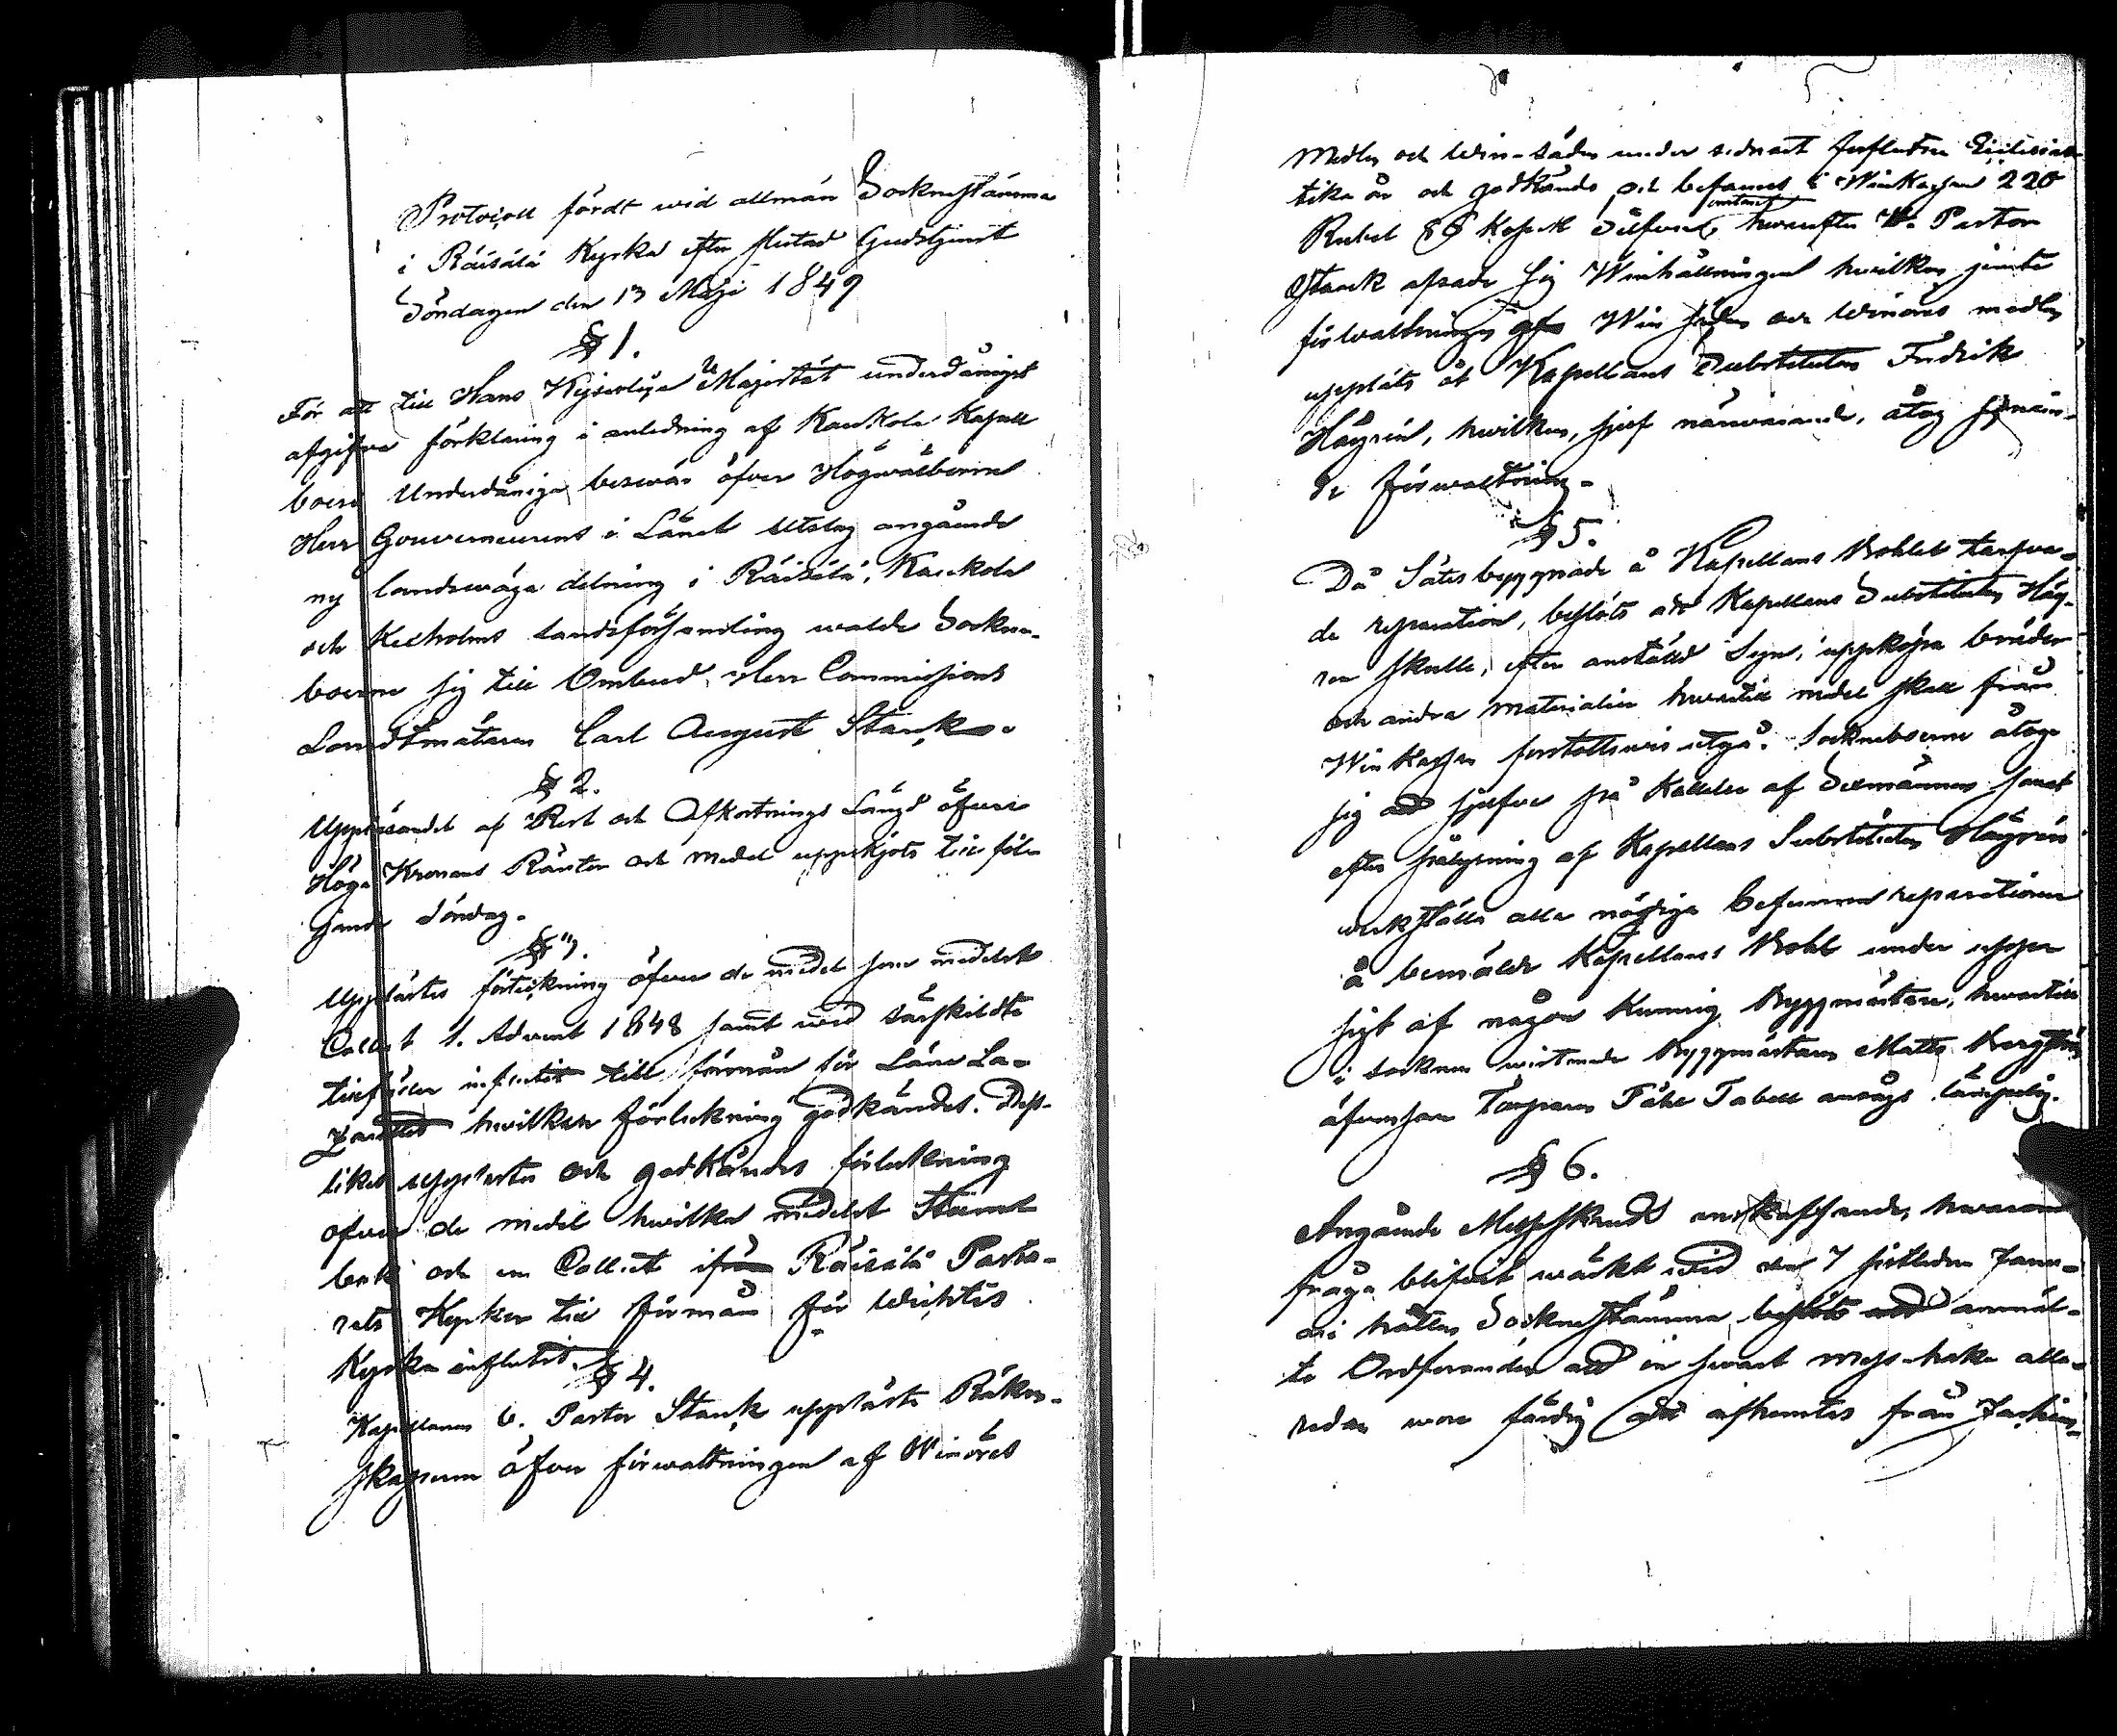 Protocoll fördt wid allmän Socknestämma
i Räisälä Kyrka efter slutad Gudstjenst
Söndagen den 13 Maji 1849
§ 1.
För att till Hans Kejserliga Majestät underdånigst
afgifva förklaring i anledning af Kaukola Kapell
boers Underdåniga beswär öfver Högwälborne
Herr Gouverneurens i Länet Utslag angående
ny landswäga delning i Räisälä, Kaukola
och Kexholms landsförsamling walde Sockne-
boerne sig till Ombud, Herr Commissions
Landtmätaren Carl August Starck.
§ 2.
Uppläsandet af Rest och Afkortnings Längd öfver
Höga Kronans Räntor och medel uppskjöts till föl-
jande Söndag.
§ 3.
Upplästes förteckning öfver de medel som medelst
Collect 1. Advent 1848 samt wid särskildte
tillfällen influtit till förmån för Läne La-
zarettet hwilken förteckning godkändes. Dess-
likes upplästes och godkändes förteckning
öfver de medel hwilka medelst Stamb-
bok och en Collect ifrån Räisälä Pasto-
rats Kyrkor till förmån för Wichtis
Kyrka influtit.
§ 4.
Kapellanen V. Pastor Starck uppläste Räken-
skaperne öfver förwaltningen af Winörets
medlen och Win-säden under sednast förflutne Ecclesias-
tika år och godkändes och befanns i Winkassan 220
Rubel 88 Kopek Silfver, hwarefter V. Pastor
Starck afsade sig Winhållningen hwilken jemte
förwaltningen af Win säden och Winörs medlen
uppläts åt Kapellans Substituten Fredrik
Häyrén, hwilken, sjelf närwarande, åtog sig näm-
de förwaltning.
§ 5.
Då Sätesbyggnade å Kapellans Bohlet tarfva-
de reparation, beslöts att Kapellans Substituten Häy-
ren skulle, efter anställd Syn, uppköpa bräder
och andra materialier hwartill medel skall från
Winkassan förskottswis utgå. Socknebоerne åtogo
sig att sjelfve på kallelse af Sexmännen samt
efter pålysning af Kapellans Substituten Häyrén
werkställa alla nödiga befunna reparationer
å bemälde Kapellans Bohl under uppse
sigt af någon kunnig Byggmästare, hwartill
i socknen wistande Byggmästaren Matts Bergström
äfvensom Torparen Påhl Tabell ansågs lämpelig.
§ 6.
Angående Messskruds anskaffande, hwarom
fråga blifvit wäckt wid den 7 sistledne Janu-
ari hållen Sockne stämma, anmäl-
te Ordföranden att en swart mess-hake alla-
redan wore färdig att afhemtas från